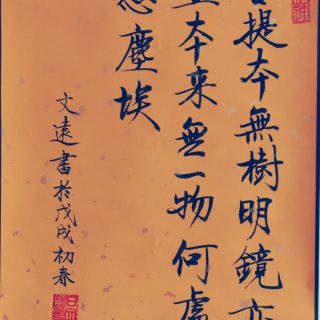 提本無樹明鏡亦
本来無一物何處
塵埃
文遠書於戊戌初春